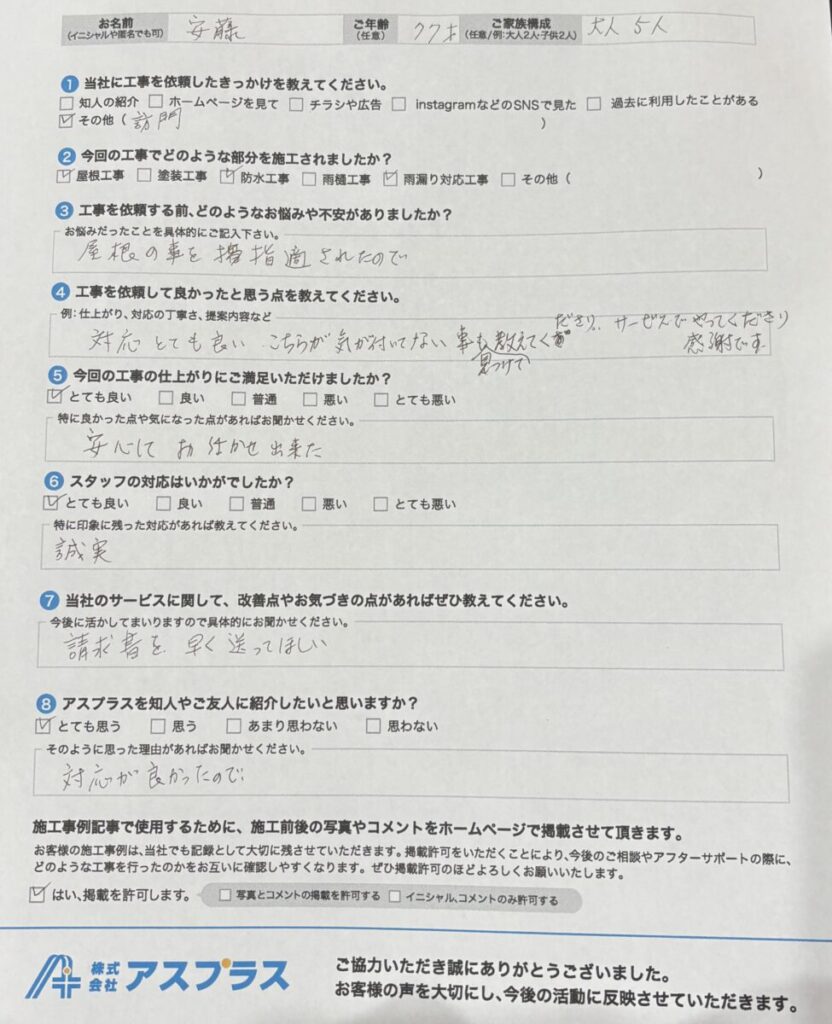 お名前
(イニシャルや匿名でも可)
安藤
ご年齢
(任意)
77才
ご家族構成
(任意/例:大人2人・子供2人)
大人 5人
1 当社に工事を依頼したきっかけを教えてください。
□ 知人の紹介 □ ホームページを見て □ チラシや広告 □ instagramなどのSNSで見た □ 過去に利用したことがある
☑ その他 ( 訪問 )
2 今回の工事でどのような部分を施工されましたか?
☑ 屋根工事 □ 塗装工事 ☑ 防水工事 □ 雨樋工事 ☑ 雨漏り対応工事 □ その他 ( )
3 工事を依頼する前、どのようなお悩みや不安がありましたか?
お悩みだったことを具体的にご記入下さい。
屋根の事を 指適されたので
4 工事を依頼して良かったと思う点を教えてください。
例:仕上がり、対応の丁寧さ、提案内容など
対応とても良い こちらが気が付いてない事も見つけて教えてくださり、サービスでやってくださり
感謝です
5 今回の工事の仕上がりにご満足いただけましたか?
☑ とても良い □ 良い □ 普通 □ 悪い □ とても悪い
特に良かった点や気になった点があればお聞かせください。
安心して お任かせ出来た
6 スタッフの対応はいかがでしたか?
☑ とても良い □ 良い □ 普通 □ 悪い □ とても悪い
特に印象に残った対応があれば教えてください。
誠実
7 当社のサービスに関して、改善点やお気づきの点があればぜひ教えてください。
今後に活かしてまいりますので具体的にお聞かせください。
請求書を 早く送ってほしい
8 アスプラスを知人やご友人に紹介したいと思いますか?
☑ とても思う □ 思う □ あまり思わない □ 思わない
そのように思った理由があればお聞かせください。
対応が良かったので
施工事例記事で使用するために、施工前後の写真やコメントをホームページで掲載させて頂きます。
お客様の施工事例は、当社でも記録として大切に残させていただきます。掲載許可をいただくことにより、今後のご相談やアフターサポートの際に、
どのような工事を行ったのかをお互いに確認しやすくなります。ぜひ掲載許可のほどよろしくお願いいたします。
☑ はい、掲載を許可します。 □ 写真とコメントの掲載を許可する □ イニシャル、コメントのみ許可する
株式会社 アスプラス
ご協力いただき誠にありがとうございました。
お客様の声を大切にし、今後の活動に反映させていただきます。